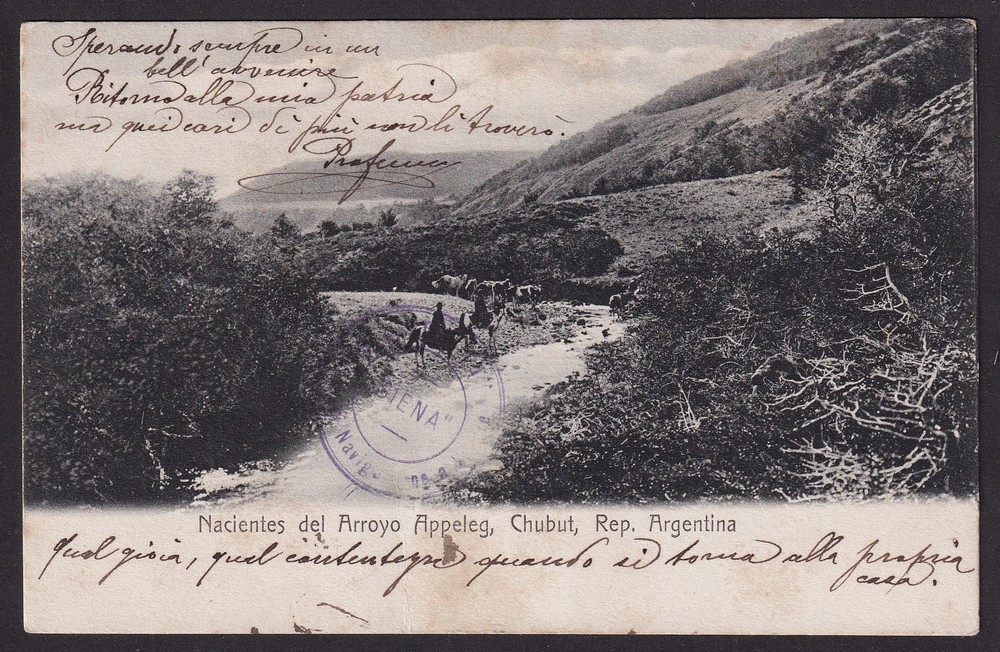 Sperando sempre in un
bell'avvenire
Ritorno alla mia patria
ma quei cari di più non li troverò.
"IENA"
Navig
Nacientes del Arroyo Appeleg, Chubut, Rep. Argentina
Qual gioia, qual contentezza quando si torna alla propria
casa.